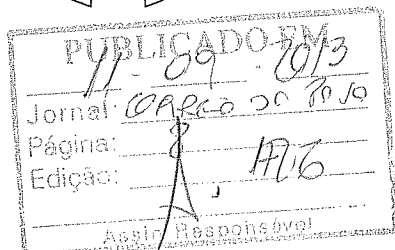 PUBLICADO EM
11 - 09 - 2013
Jornal: CORREIO DO POVO
Página: 8
Edição:
Assin. Responsável